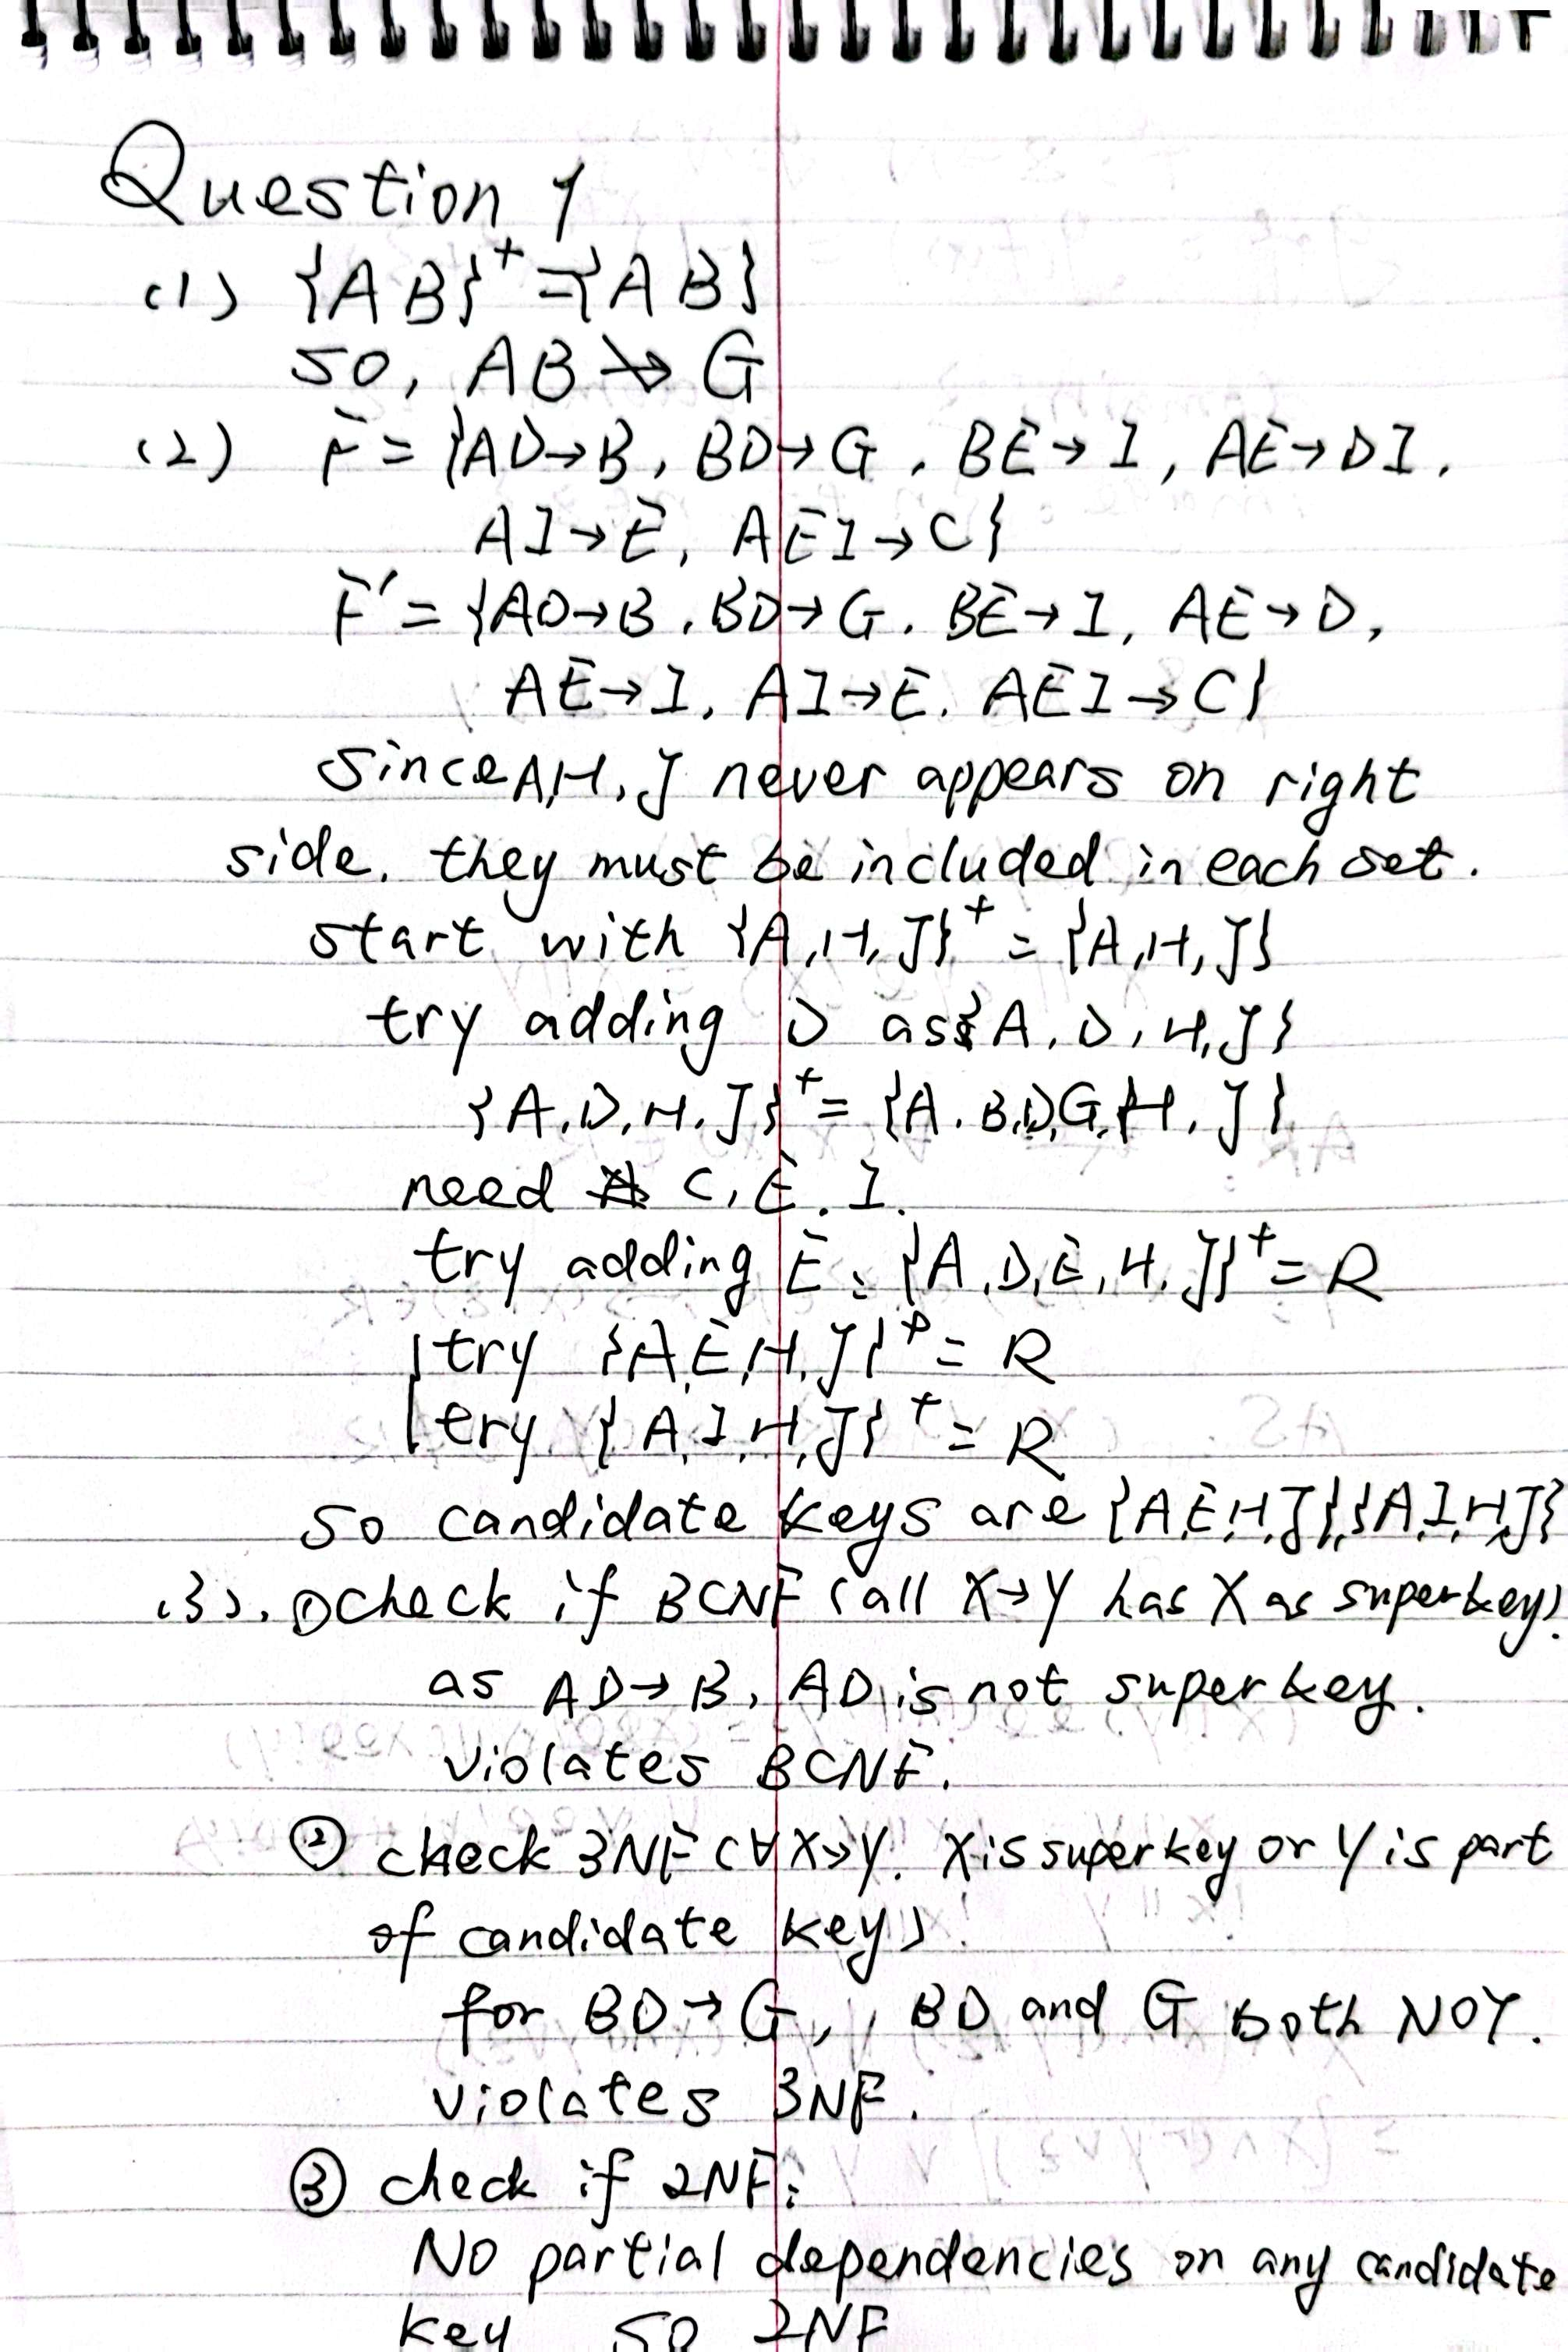 Question 1
(1) {AB}⁺ = {AB}
so, AB ↛ G
(2) F = {AD→B, BD→G, BE→I, AE→DI,
AI→E, AEI→C}
F' = {AD→B, BD→G, BE→I, AE→D,
AE→I, AI→E, AEI→C}
since A,H,J never appears on right
side, they must be included in each set.
start with {A,H,J}⁺ = {A,H,J}
try adding D as {A,D,H,J}
{A,D,H,J}⁺ = {A,B,D,G,H,J}
need C,E,I.
try adding E: {A,D,E,H,J}⁺ = R
try {A,E,H,J}⁺ = R
try {A,I,H,J}⁺ = R
so candidate keys are {A,E,H,J},{A,I,H,J}
(3). ① check if BCNF (all X→Y has X as superkey).
as AD→B, AD is not superkey.
violates BCNF.
② check 3NF (∀X→Y. X is superkey or Y is part
of candidate key).
for BD→G, BD and G both NOT.
violates 3NF.
③ check if 2NF:
No partial dependencies on any candidate
key so 2NF